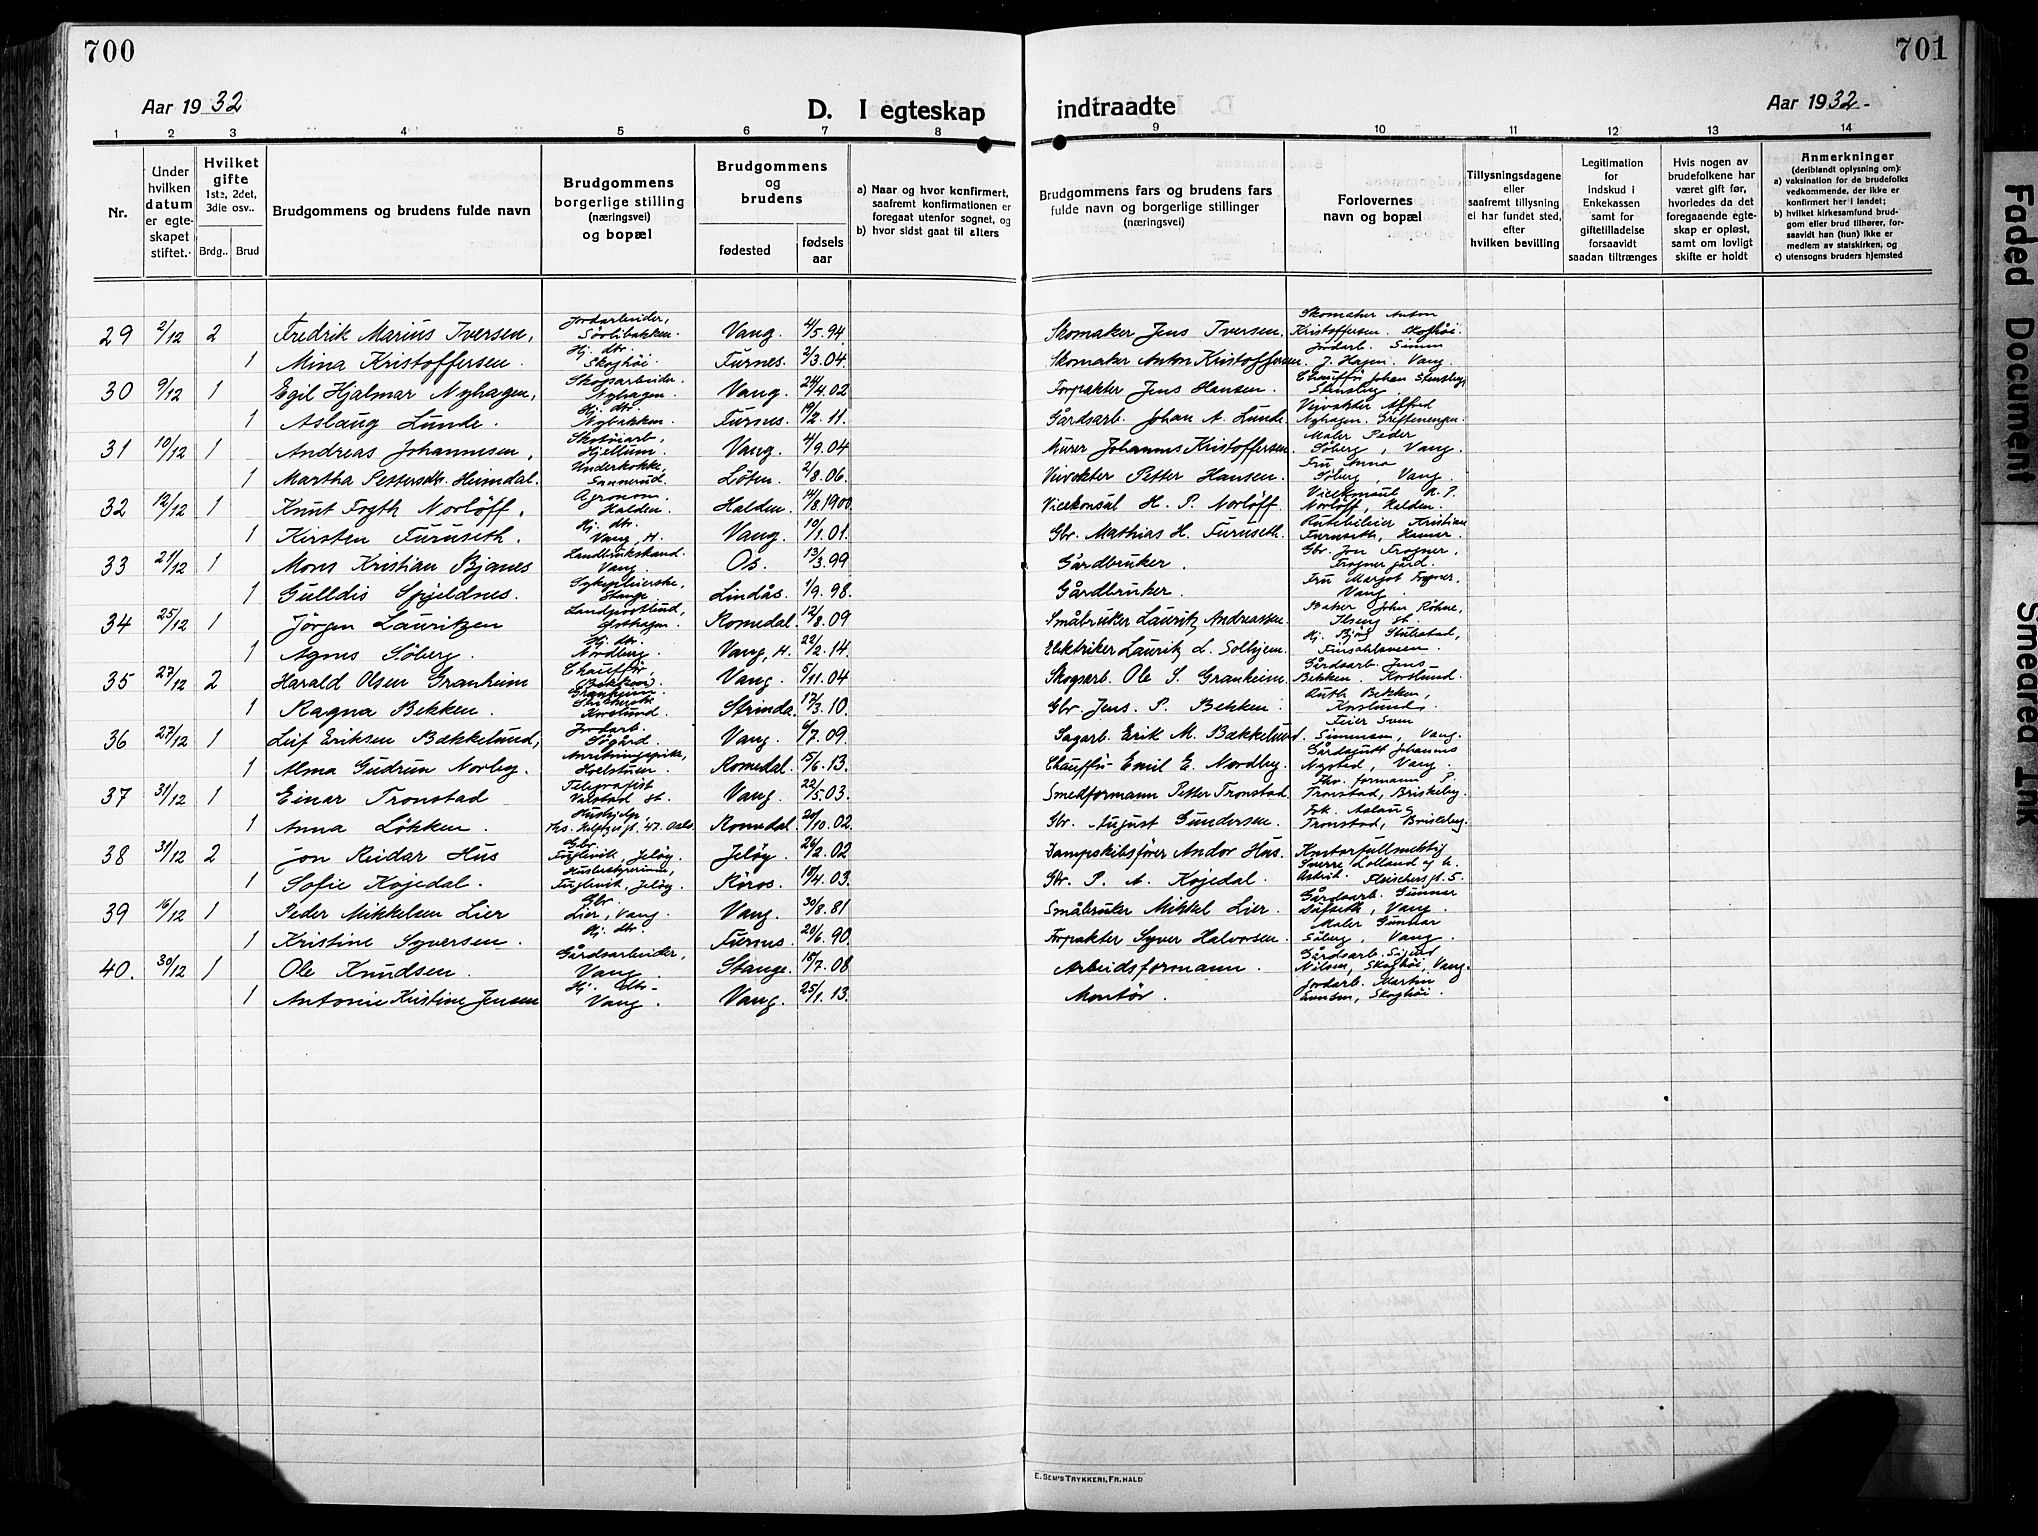 700
701
Aar 1932
D. I egteskap
indtraadte
Aar 1932-
1 2 3 4 5 6 7 8 9 10 11 12 13 14
Nr.
Under hvilken datum er egteskapet stiftet.
Hvilket gifte 1ste, 2det, 3die osv..
Brdg.. Brud
Brudgommens og brudens fulde navn
Brudgommens borgerlige stilling (næringsvei) og bopæl
Brudgommens og brudens
fødested
fødsels aar
a) Naar og hvor konfirmert, saafremt konfirmationen er foregaat utenfor sognet, og
b) hvor sidst gaat til alters
Brudgommens fars og brudens fars fulde navn og borgerlige stillinger (næringsvei)
Forlovernes navn og bopæl
Tillysningsdagene eller saafremt tillysning ei har fundet sted, efter hvilken bevilling
Legitimation for indskud i Enkekassen samt for giftetilladelse forsaavidt saadan tiltrænges
Hvis nogen av brudefolkene har været gift før, hvorledes da det foregaaende egteskap er opløst, samt om lovligt skifte er holdt
Anmerkninger (deriblandt oplysning om):
a) vaksination for de brudefolks vedkommende, der ikke er konfirmert her i landet;
b) hvilket kirkesamfund brudgom eller brud tilhører, forsaavidt han (hun) ikke er medlem av statskirken, og
c) utensogns bruders hjemsted
29 2/12 2 Fredrik Marius Iversen, Jordarbeider, Sørlibakken. Vang. 4/5.94 Skomaker Jens Iversen. Skomaker Anton Kristoffersen. Skoghöi.
1 Mina Kristoffersen. Hj. dtr. Skoghöi Furnes. 2/3.04. Skomaker Anton Kristoffersen. Jordarb. Simen J. Hagen. Vang.
30 9/12 1 Egil Hjalmar Nyhagen, Skogsarbeider. Nyhagen. Vang. 24/4.02 Forpakter Jens Hansen. Chauffør Johan Stensby,
1 Aslaug Lunde. Hj. dtr. Nybakken. Furnes. 19/2.11. Gårdsarb. Johan A. Lunde. Veivokter Alfred Nyhagen.
31 10/12 1 Andreas Johannesen, Skotöiarb, Hjellum. Vang. 4/9.04 Murer Johannes Kristoffersen. Maler Peder Söberg, Vang.
1 Martha Pettersdtr. Heimdal. Underkokke, Sannerud. Löten. 2/8.06. Veivokter Petter Hansen. Fru Anna Söberg, Vang.
32 12/12 1 Knut Frgth Norlöff. Agronom. Halden. Halden. 14/8.1900 Vicekonsul H. P. Norlöff Vicekonsul H. P. Norlöff, Halden.
1 Kirsten Furuseth. Hj. dtr. Vang, H. Vang. 10/1.01. Gbr. Mathias H. Furuseth. Rutebileier Kristian Furuseth, Hamar.
33 21/12 1 Mons Kristian Bjanes Landbrukskand. Vang. Os. 13/3.99 Gårdbruker. Gbr. Jon Frogner, Frogner gård.
1 Gulldis Spjeldnes. Sykepleierske, Stange. Lindås. 1/9.98. Gårdbruker. Fru Margot Frogner, Vang.
34 25/12 1 Jörgen Lauritzen Landpostbud, Romedal. 12/8.09 Småbruker Lauritz Andreassen. Baker John Röhne, Ilseng st.
1 Agnes Söberg. Hj. dtr. Nordberg. Vang, H. 22/2.14. Elektriker Lauritz L. Solhjem.
35 27/12 2 Harald Olsen Granheim Chauffør, Granheim. Vang. 5/11.04 Skogsarb. Ole S. Granheim Gårdsarb. Jens Bekken. Korslund.
1 Ragna Bekken. Korslund. Strinda. 17/3.10. Gbr. Jens. P. Bekken. Ruth Bekken, Korslund.
36 27/12 1 Leif Eriksen Bækkelund, Jordarb. Sögård. Vang. 6/7.09. Sagarb. Erik M. Bækkelund. Feier Sven Simensen, Vang.
1 Alma Gudrun Norby. Anretningspike, Hoelstuen. Romedal. 15/6.13. Chauffør Emil E. Nordby. Gårdsgutt Johannes Nysted, Vang.
37 31/12 1 Einar Tronstad Telegrafist Vang. 22/5.03. Smedformann Petter Tronstad. formann P. Tronstad, Briskeby.
1 Anna Lökken. Hushjelp. Romedal. 20/10.02. Gbr. August Gundersen. Frk. Aslaug Tronstad, Briskeby.
38 31/12 2 Jon Reidar Hus Gbr. Fuglevik, Jelöy. Jelöy. 26/2.02 Dampskibsfører Andor Hus. Kontorfullmektig
1 Sofie Kojedal. Husbestyrerinne, Fuglevik, Jelöy. Röros. 18/4.03. Gbr. P. A. Kojedal. Sverre Lolland og h. Astrid. Fleischersgt. 5.
39 16/12 1 Peder Mikkelsen Lier Gbr. Lier, Vang. Vang. 30/8.81 Småbruker Mikkel Lier. Gårdsarb. Gunnar Vang.
1 Kristine Syversen. Hj. dtr. Furnes. 20/6.90. Forpakter Syver Halvorsen. Maler Gunnar Söberg, Vang.
40. 30/12 1 Ole Knudsen. Gårdsarbeider, Vang. Stange. 18/7.08 Arbeidsformann. Gårdsarb. Sigurd Nilsen, Skoghöi, Vang.
1 Antonie Kristine Jensen Hj. dtr- Vang. Vang. 25/1.13. Montör. Jordarb. Martin Svensen, Skoghöi.
E. SEM'S TRYKKERI, FR.HALD
Faded Document
Smeared Ink